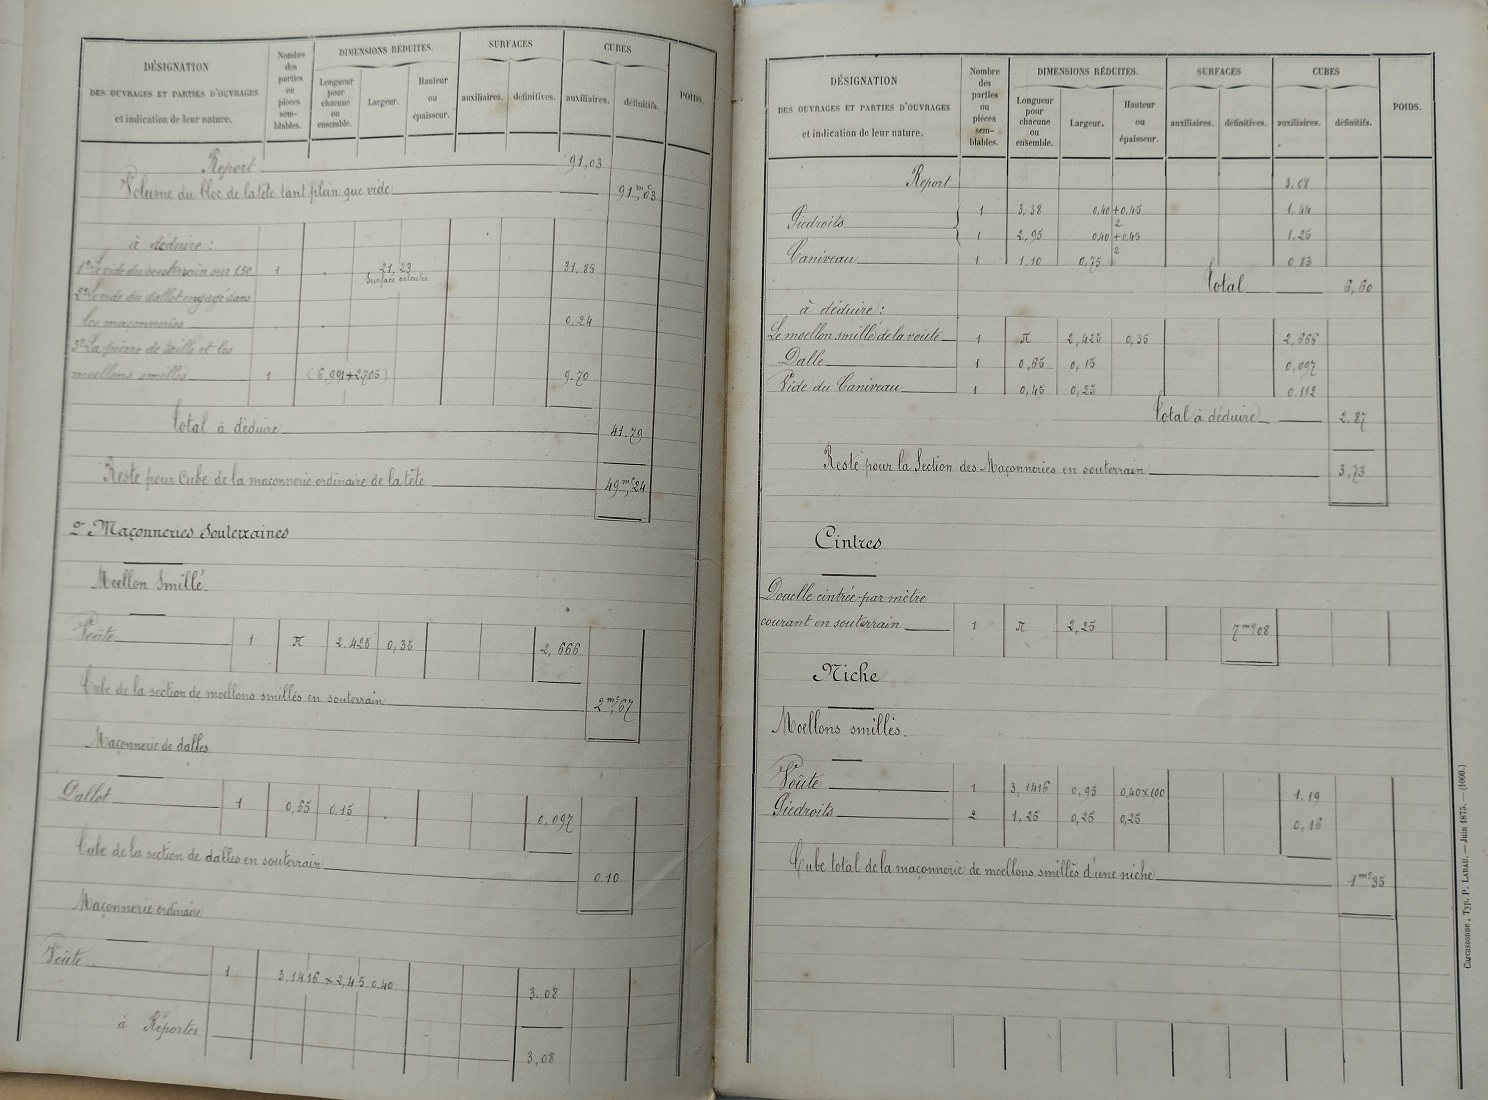 DÉSIGNATION
DES OUVRAGES ET PARTIES D'OUVRAGES
et indication de leur nature.
Nombre des parties ou pièces sem-blables.
DIMENSIONS RÉDUITES.
Longueur pour chacune ou ensemble.
Largeur.
Hauteur ou épaisseur.
SURFACES
auxiliaires. définitives.
CUBES
auxiliaires. définitifs.
POIDS.
Report 91,03
Volume du bloc de la tête tant plein que vide 91mc,03
à déduire :
1º Le vide du souterrain sur 1.50 1 21,23 31.85
Surface calculée
2º Le vide du dallot engagé dans
les maçonneries 0,24
3º La pierre de taille et les
moellons smillés 1 (6,991+2,705) 9.70
Total à déduire 41.79
Reste pour Cube de la maçonnerie ordinaire de la tête 49mc,24
2º Maçonneries Souterraines
Moellon Smillé.
Voûte 1 π 2.425 0,35 2,666
Cube de la section de moellons smillés en souterrain 2mc,67
Maçonnerie de dalles
Dallot 1 0,65 0.15 0,097
Cube de la section de dalles en souterrain 0.10
Maçonnerie ordinaire
Voûte 1 3,1416 × 2,45 0,40 3.08
à Reporter 3,08
DÉSIGNATION
DES OUVRAGES ET PARTIES D'OUVRAGES
et indication de leur nature.
Nombre des parties ou pièces sem-blables.
DIMENSIONS RÉDUITES.
Longueur pour chacune ou ensemble.
Largeur.
Hauteur ou épaisseur.
SURFACES
auxiliaires. définitives.
CUBES
auxiliaires. définitifs.
POIDS.
Report 3.08
Piedroits { 1 3,38 0,40+0,45 / 2 1.44
1 2,95 0,40+0,45 / 2 1.25
Caniveau 1 1.10 0,75 0,83
Total 6,60
à déduire :
Le moellon smillé de la voûte 1 π 2,425 0,35 2,666
Dalle 1 0,65 0,15 0,097
Vide du Caniveau 1 0,45 0,25 0.112
Total à déduire 2.87
Reste pour la Section des Maçonneries en souterrain 3,73
Cintres
Douelle cintrée par mètre
courant en souterrain 1 π 2,25 7mq08
Niche
Moellons smillés.
Voûte 1 3,1416 0,95 0,40×1,00 1.19
Piedroits 2 1,25 0,25 0,25 0,16
Cube total de la maçonnerie de moellons smillés d'une niche 1mc35
Carcassonne, Typ. P. LABAU. — Juin 1875. — (1000.)